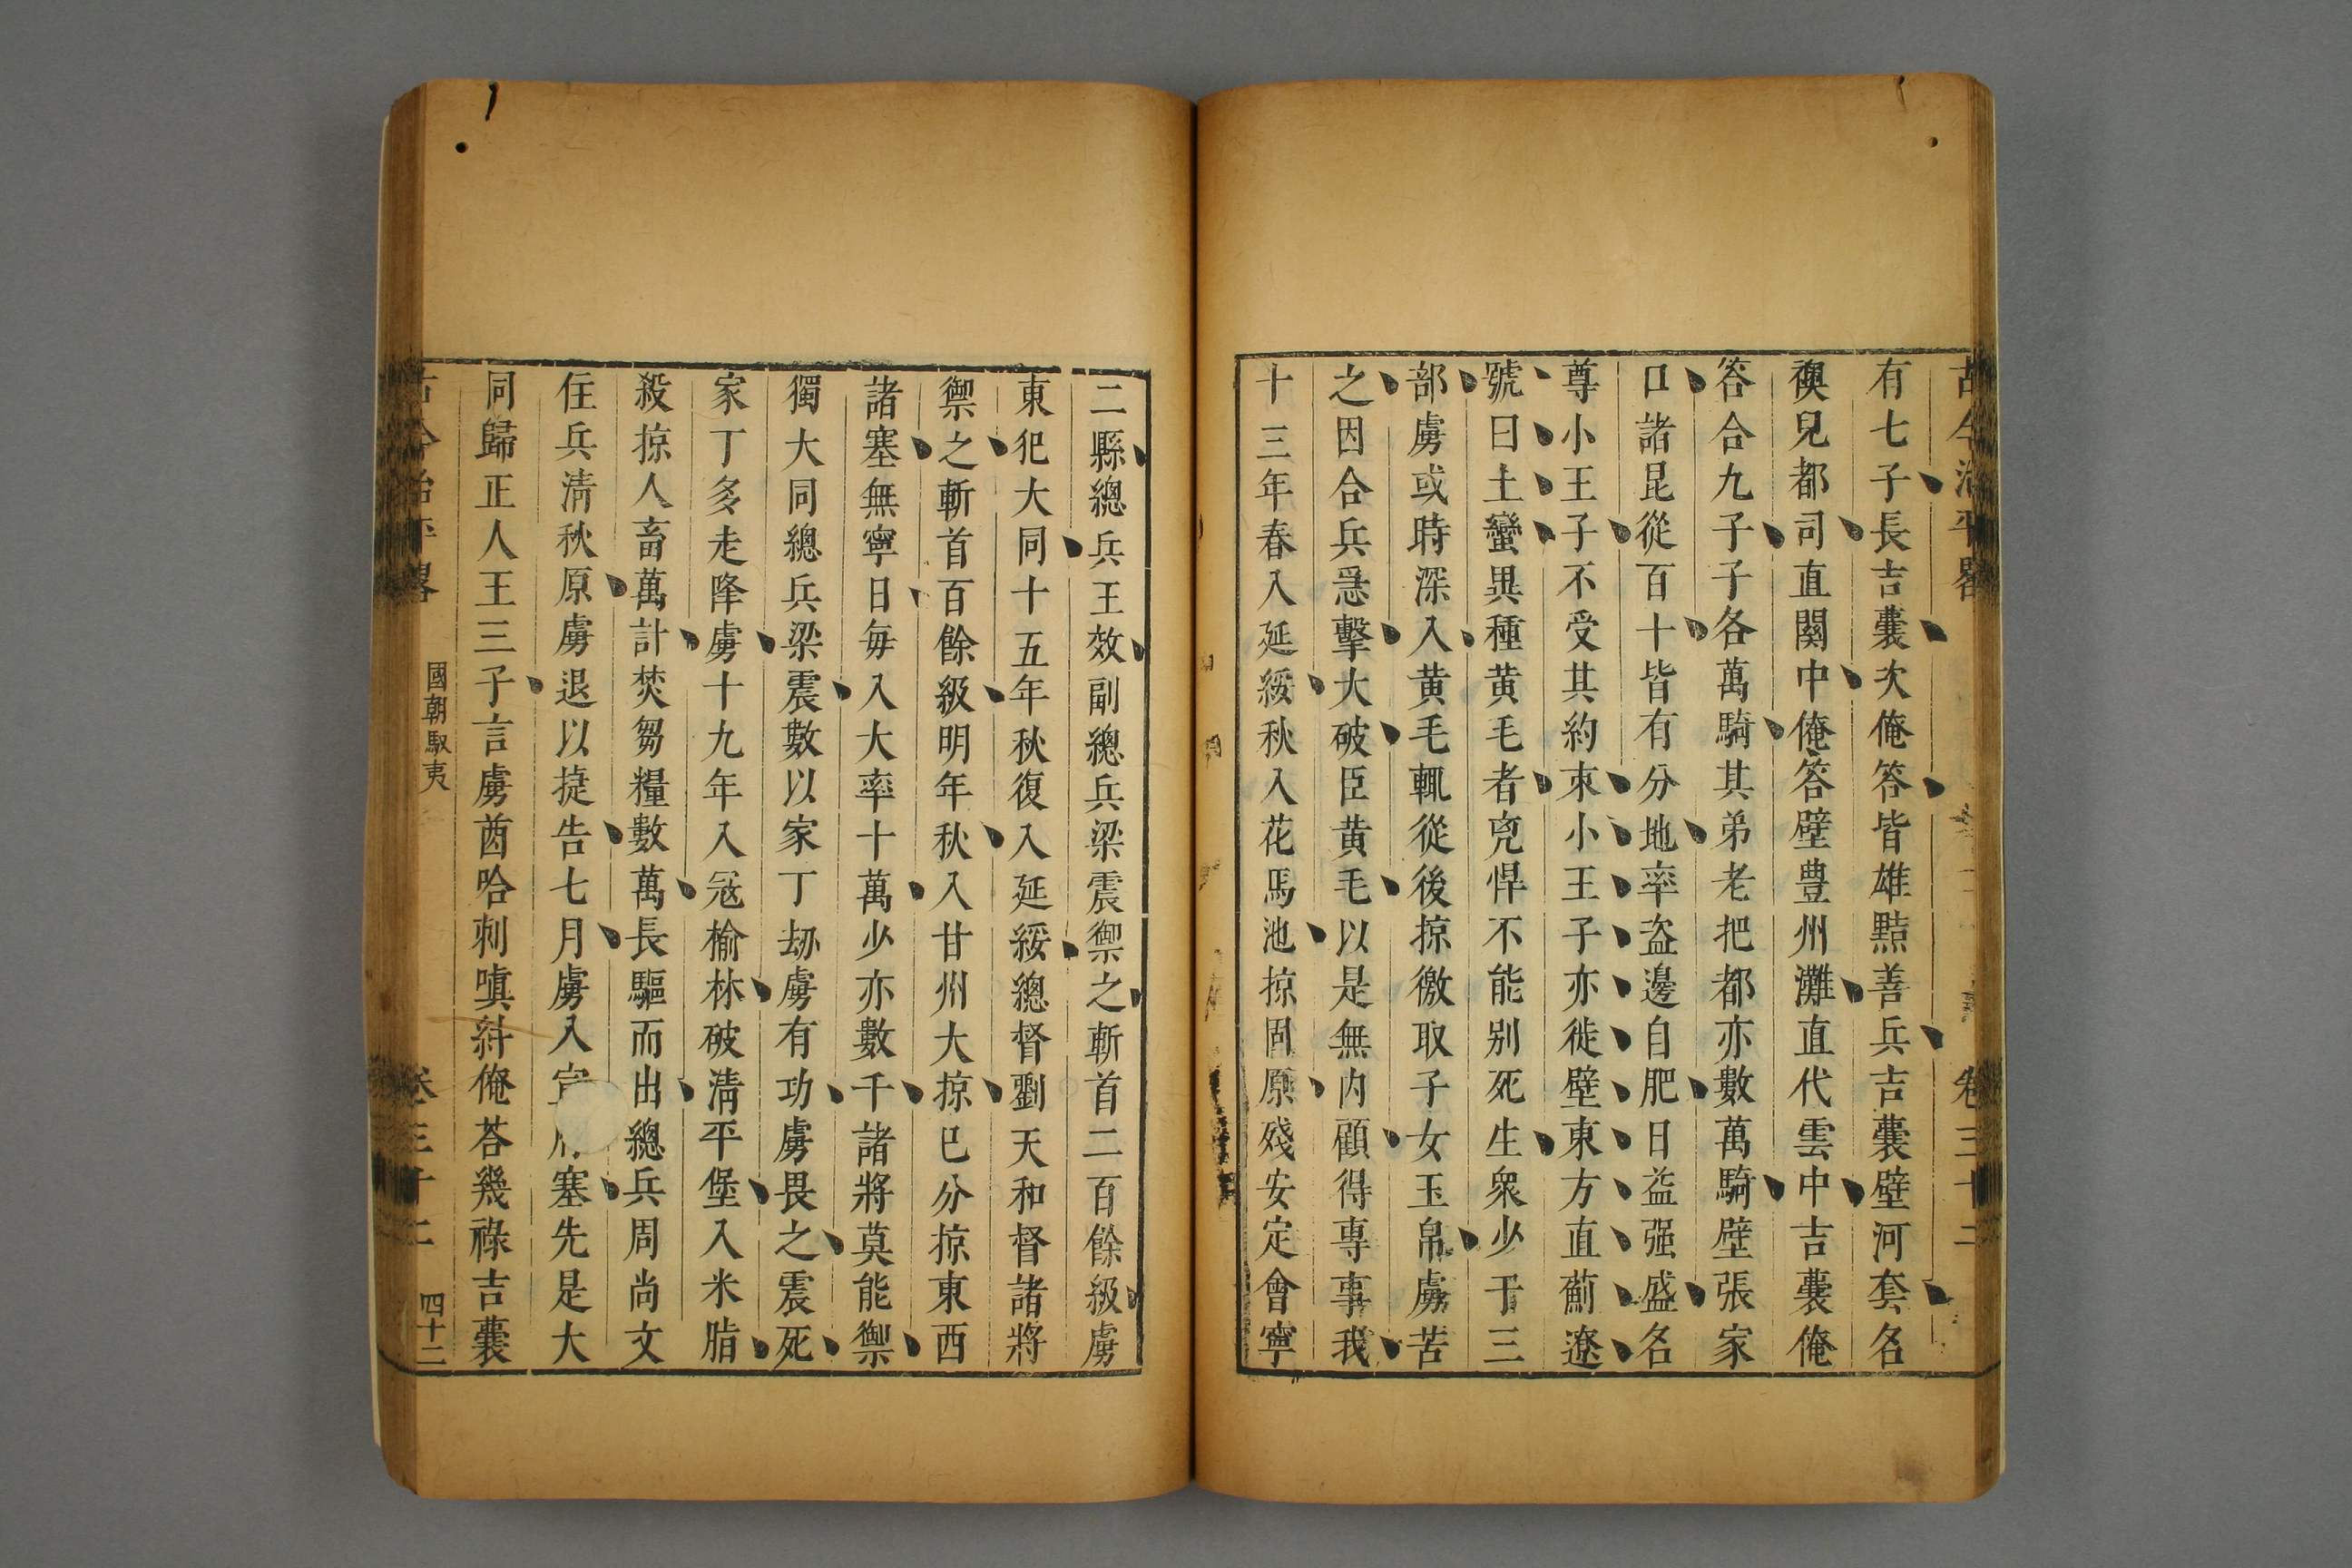 古今治平畧
卷三十二
有七子長吉囊次俺答皆雄黠善兵吉囊壁河套名
襖兒都司直關中俺答壁豊州灘直代雲中吉囊俺
答合九子子各萬騎其弟老把都亦數萬騎壁張家
口諸昆從百十皆有分地率盗邊自肥日益强盛名
尊小王子不受其約束小王子亦徙壁東方直薊遼
號曰土蠻異種黄毛者兇悍不能别死生衆少于三
部虜或時深入黄毛輒從後掠徼取子女玉帛虜苦
之因合兵急擊大破臣黄毛以是無内顧得專事我
十三年春入延綏秋入花馬池掠固原殘安定會寧
二縣總兵王效副總兵梁震禦之斬首二百餘級虜
東犯大同十五年秋復入延綏總督劉天和督諸將
禦之斬首百餘級明年秋入甘州大掠巳分掠東西
諸塞無寧日每入大率十萬少亦數千諸將莫能禦
獨大同總兵梁震數以家丁劫虜有功虜畏之震死
家丁多走降虜十九年入冦榆林破淸平堡入米脂
殺掠人畜萬計焚芻糧數萬長驅而出總兵周尚文
住兵淸秋原虜退以㨗告七月虜入塞先是大
同歸正人王三子言虜酋哈刺嗔糾俺荅幾祿吉囊
古今治平畧
國朝馭夷
卷三十二
四十二